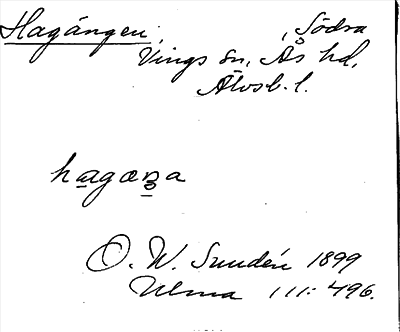 Hagängen, , Södra
Vings sn, Ås hd,
Älvsb. l.
hagæŋa
O. W. Sundén 1899
Ulma 111: 496.